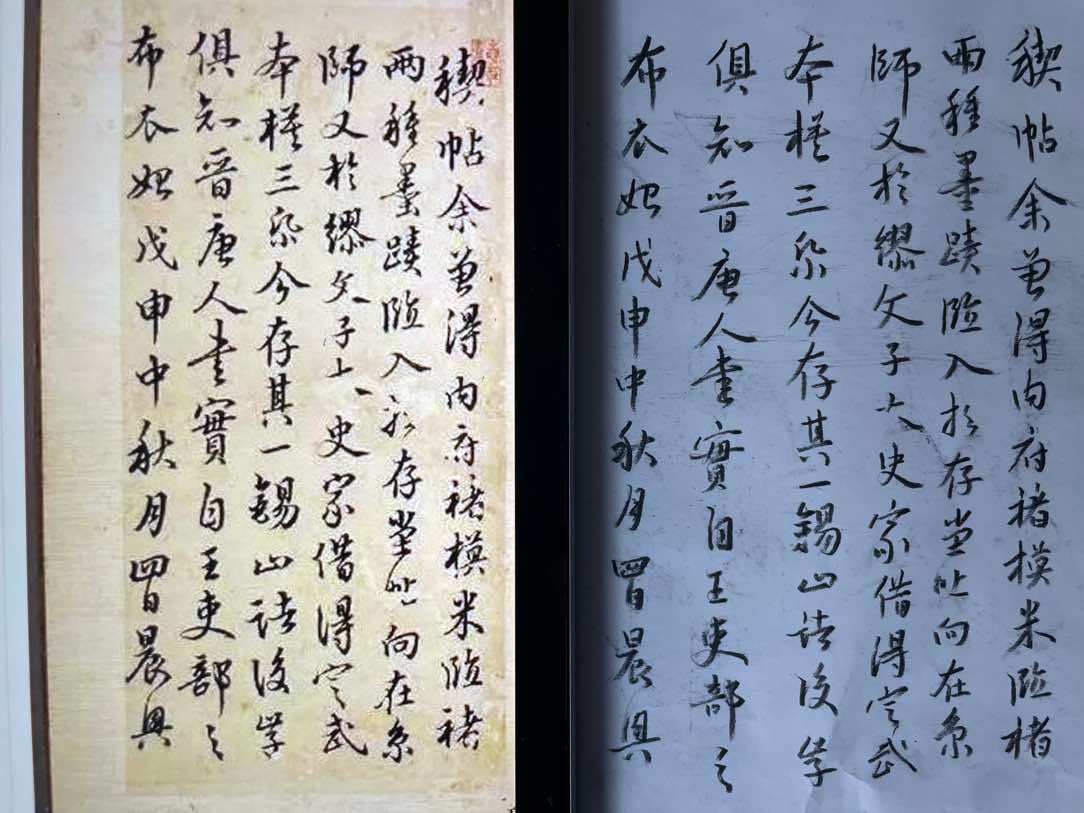 禊帖余曾得内府褚模米臨褚
兩種墨蹟臨入於存堂此向在京
師又於繆文子太史家借得定武
本摸三今存其一錫山諸後學
俱知晉唐人書實自王吏部之
布衣始戊申中秋月四日晨興
禊帖余曾得内府褚模米臨褚
兩種墨蹟臨入於存堂此向在京
師又於繆文子太史家借得定武
本摸三今存其一錫山諸後學
俱知晉唐人書實自王吏部之
布衣始戊申中秋月四日晨興